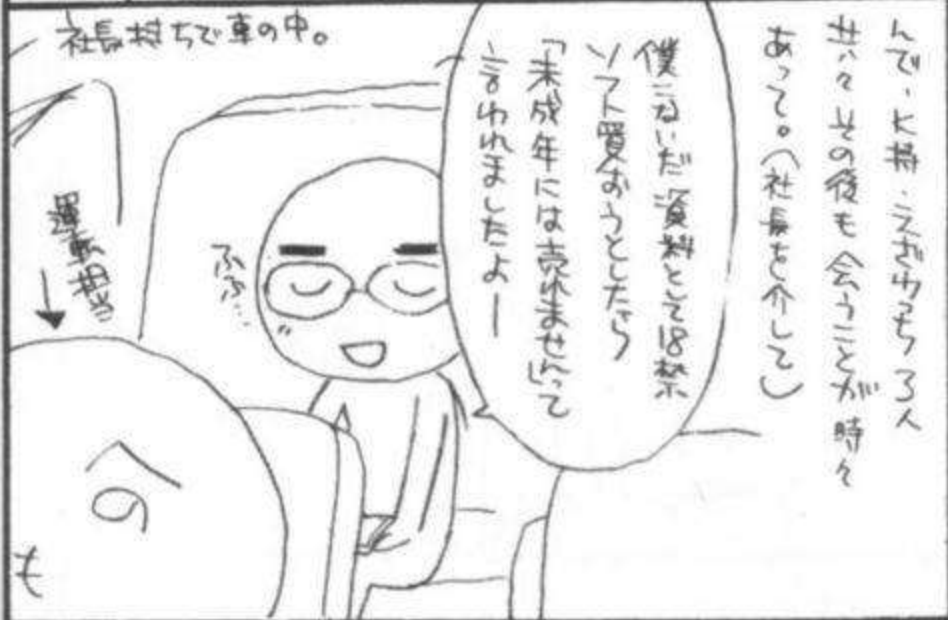 んで、K持・えざわっち 3人
共々その後も会うことが時々
あって。(社長を介して)
僕こないだ資料として18禁
ソフト買おうとしたら
「未成年には売れません」って
言われましたよー
社長待ちで車の中。
ふふ…
運転担当
へ
の
も